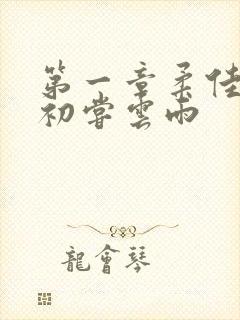 第一章柔佳
初嘗雲雨
龍會琴